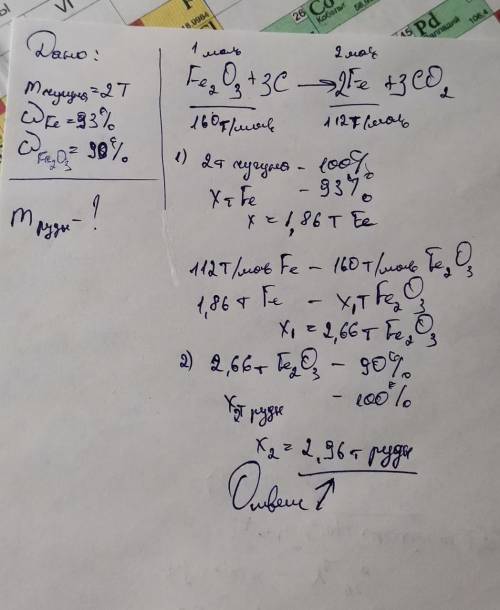 Дано:
m чугуна = 2 т
ω Fe = 93%
ω Fe₂O₃ = 90%
m руды - ?
1 моль 2 моль
Fe₂O₃ + 3C → 2Fe + 3CO₂
160 т/моль 112 т/моль
1) 2 т чугуна - 100%
x т Fe - 93%
x = 1,86 т Fe
112 т/моль Fe - 160 т/моль Fe₂O₃
1,86 т Fe - x₁ т Fe₂O₃
x₁ = 2,66 т Fe₂O₃
2) 2,66 т Fe₂O₃ - 90%
x₂ т руды - 100%
x₂ = 2,96 т руды
Ответ ↑